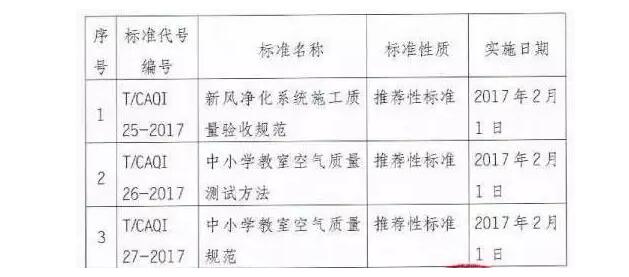 序号 标准代号编号 标准名称 标准性质 实施日期
1 T/CAQI 25-2017 新风净化系统施工质量验收规范 推荐性标准 2017年2月1日
2 T/CAQI 26-2017 中小学教室空气质量测试方法 推荐性标准 2017年2月1日
3 T/CAQI 27-2017 中小学教室空气质量规范 推荐性标准 2017年2月1日